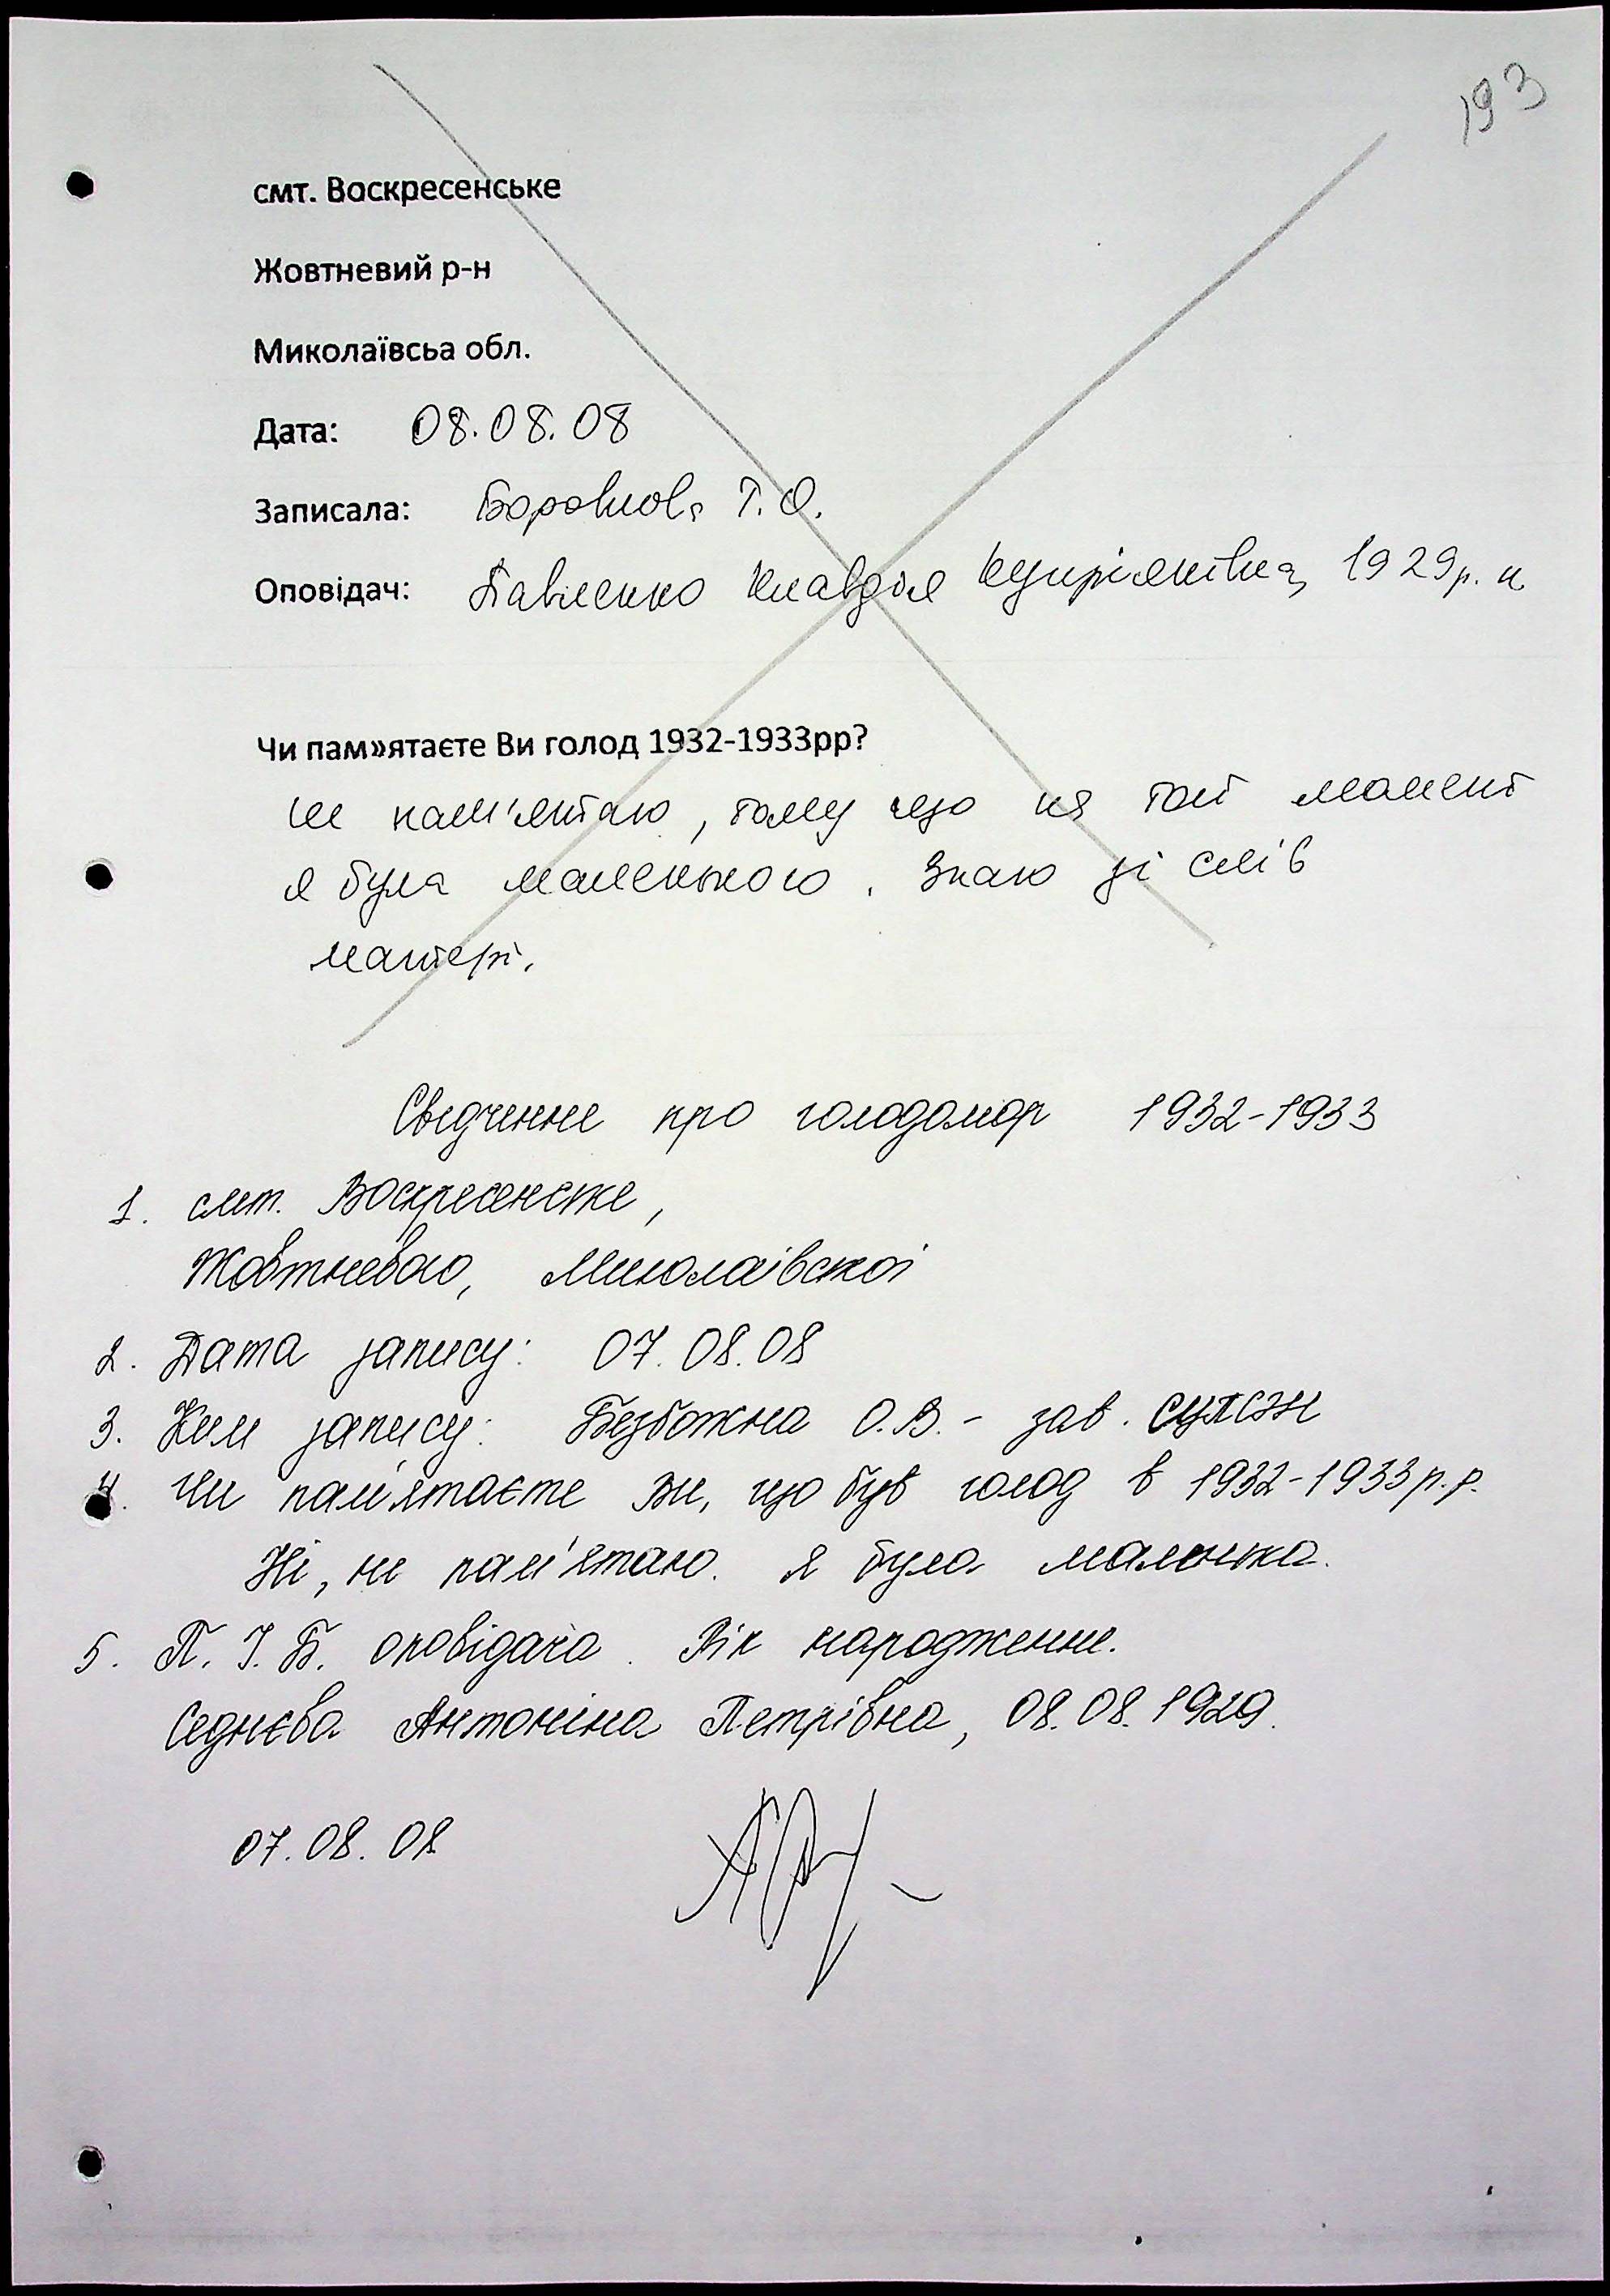 193
смт. Воскресенське
Жовтневий р-н
Миколаївсьа обл.
Дата: 08.08.08
Записала: Боровлова Т.О.
Оповідач: Павленко Клавдія Купріянівна, 1929р. н
Чи пам»ятаєте Ви голод 1932-1933рр?
Не пам'ятаю, тому що на той момент
я була маленькою. Знаю зі слів
матері.
Свідчення про голодомор 1932-1933
1. смт. Воскресенське,
Жовтневого, Миколаївської
2. Дата запису: 07.08.08
3. Ким запису: Безбожна О.В. - зав.
4. Чи пам'ятаєте Ви, що був голод в 1932-1933 р.р.
Ні, не пам'ятаю. Я була маленька.
5. П.І.Б. оповідача. Рік народження.
Седнєва Антоніна Петрівна, 08.08.1929.
07.08.08